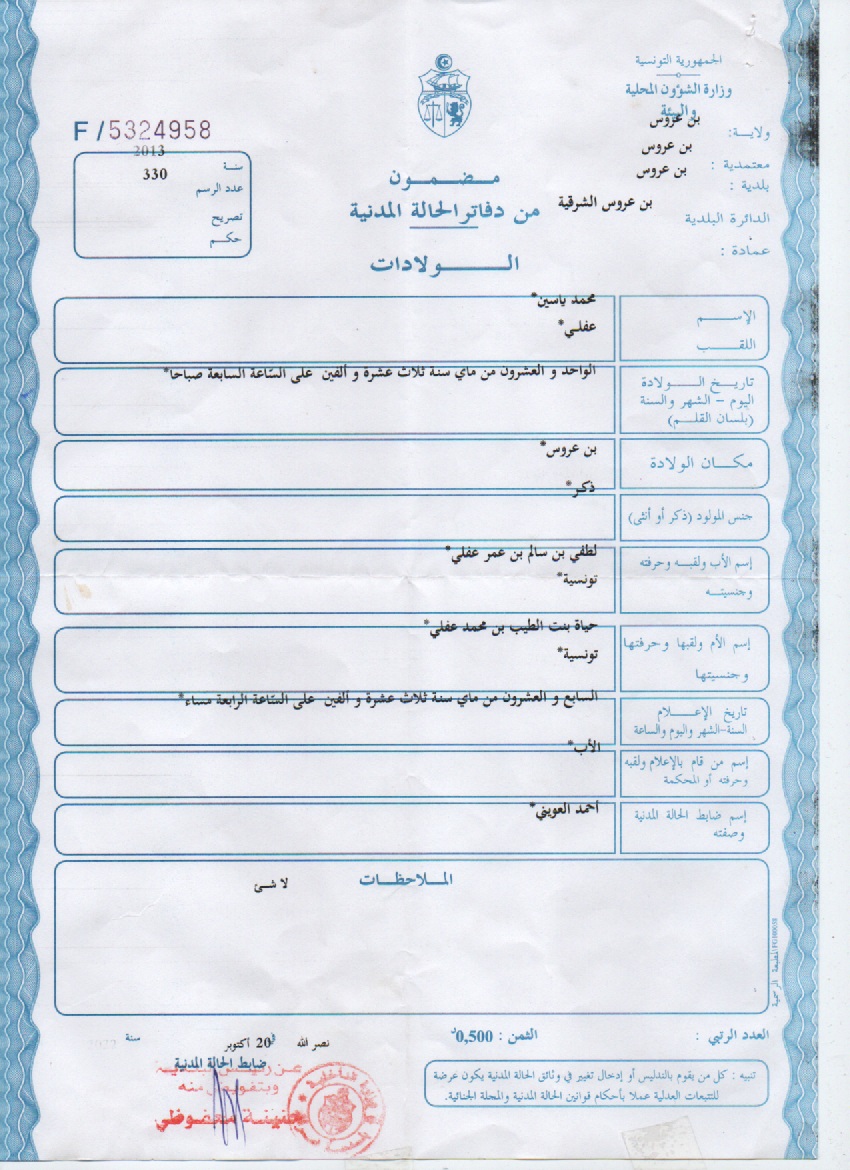 الجمهورية التونسية
وزارة الشؤون المحلية
والبيئة
ولاية: بن عروس
معتمدية : بن عروس
بلدية : بن عروس
الدائرة البلدية بن عروس الشرقية
عمادة :
F/5324958
سنة 2013
عدد الرسم 330
تصريح
حكم
مضمون
من دفاتر الحالة المدنية
الولادات
الإسم محمد ياسين*
اللقب عفلي*
تاريخ الولادة
اليوم - الشهر والسنة
(بلسان القلم)
الواحد و العشرون من ماي سنة ثلاث عشرة و ألفين على السّاعة السابعة صباحا*
مكان الولادة بن عروس*
جنس المولود (ذكر أو أنثى) ذكر*
إسم الأب ولقبه وحرفته
وجنسيته
لطفي بن سالم بن عمر عفلي*
تونسية*
إسم الأم ولقبها وحرفتها
وجنسيتها
حياة بنت الطيب بن محمد عفلي*
تونسية*
تاريخ الإعلام
السنة-الشهر واليوم والساعة
السابع و العشرون من ماي سنة ثلاث عشرة و ألفين على السّاعة الرابعة مساء*
إسم من قام بالإعلام ولقبه
وحرفته أو المحكمة
الأب*
إسم ضابط الحالة المدنية
وصفته
أحمد العويني*
الملاحظات
لا شئ
المطبعة الرسمية
العدد الرتبي :
الثمن : 0,500د
نصر الله في 20 أكتوبر سنة
ضابط الحالة المدنية
عن رئيس البلدية
وبتفويض منه
تنبيه : كل من يقوم بالتدليس أو إدخال تغيير في وثائق الحالة المدنية يكون عرضة
للتتبعات العدلية عملا بأحكام قوانين الحالة المدنية والمجلة الجنائية.